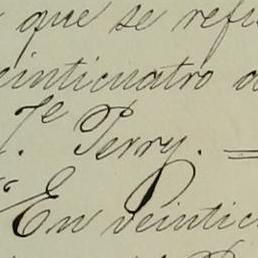 que se refi
einticuatro d
Fe Perry. =
En veintic